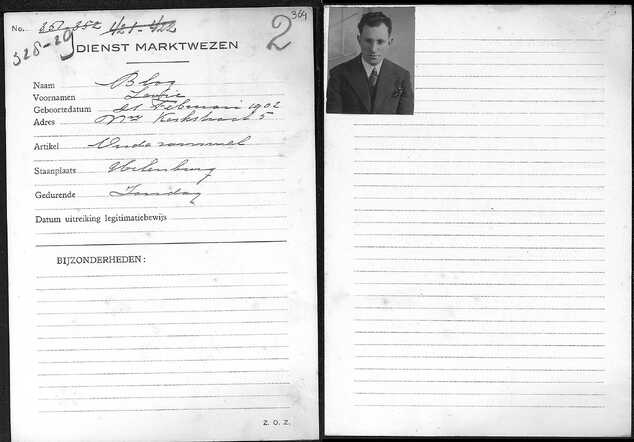 No. 351-352 421-422 364
328-29 2
DIENST MARKTWEZEN
Naam Blog
Voornamen
Geboortedatum 21 Februari 1902
Adres Nwe Kerkstraat 5
Artikel Oude rommel
Staanplaats Uilenburg
Gedurende Zondag
Datum uitreiking legitimatiebewijs
BIJZONDERHEDEN:
Z. O. Z.